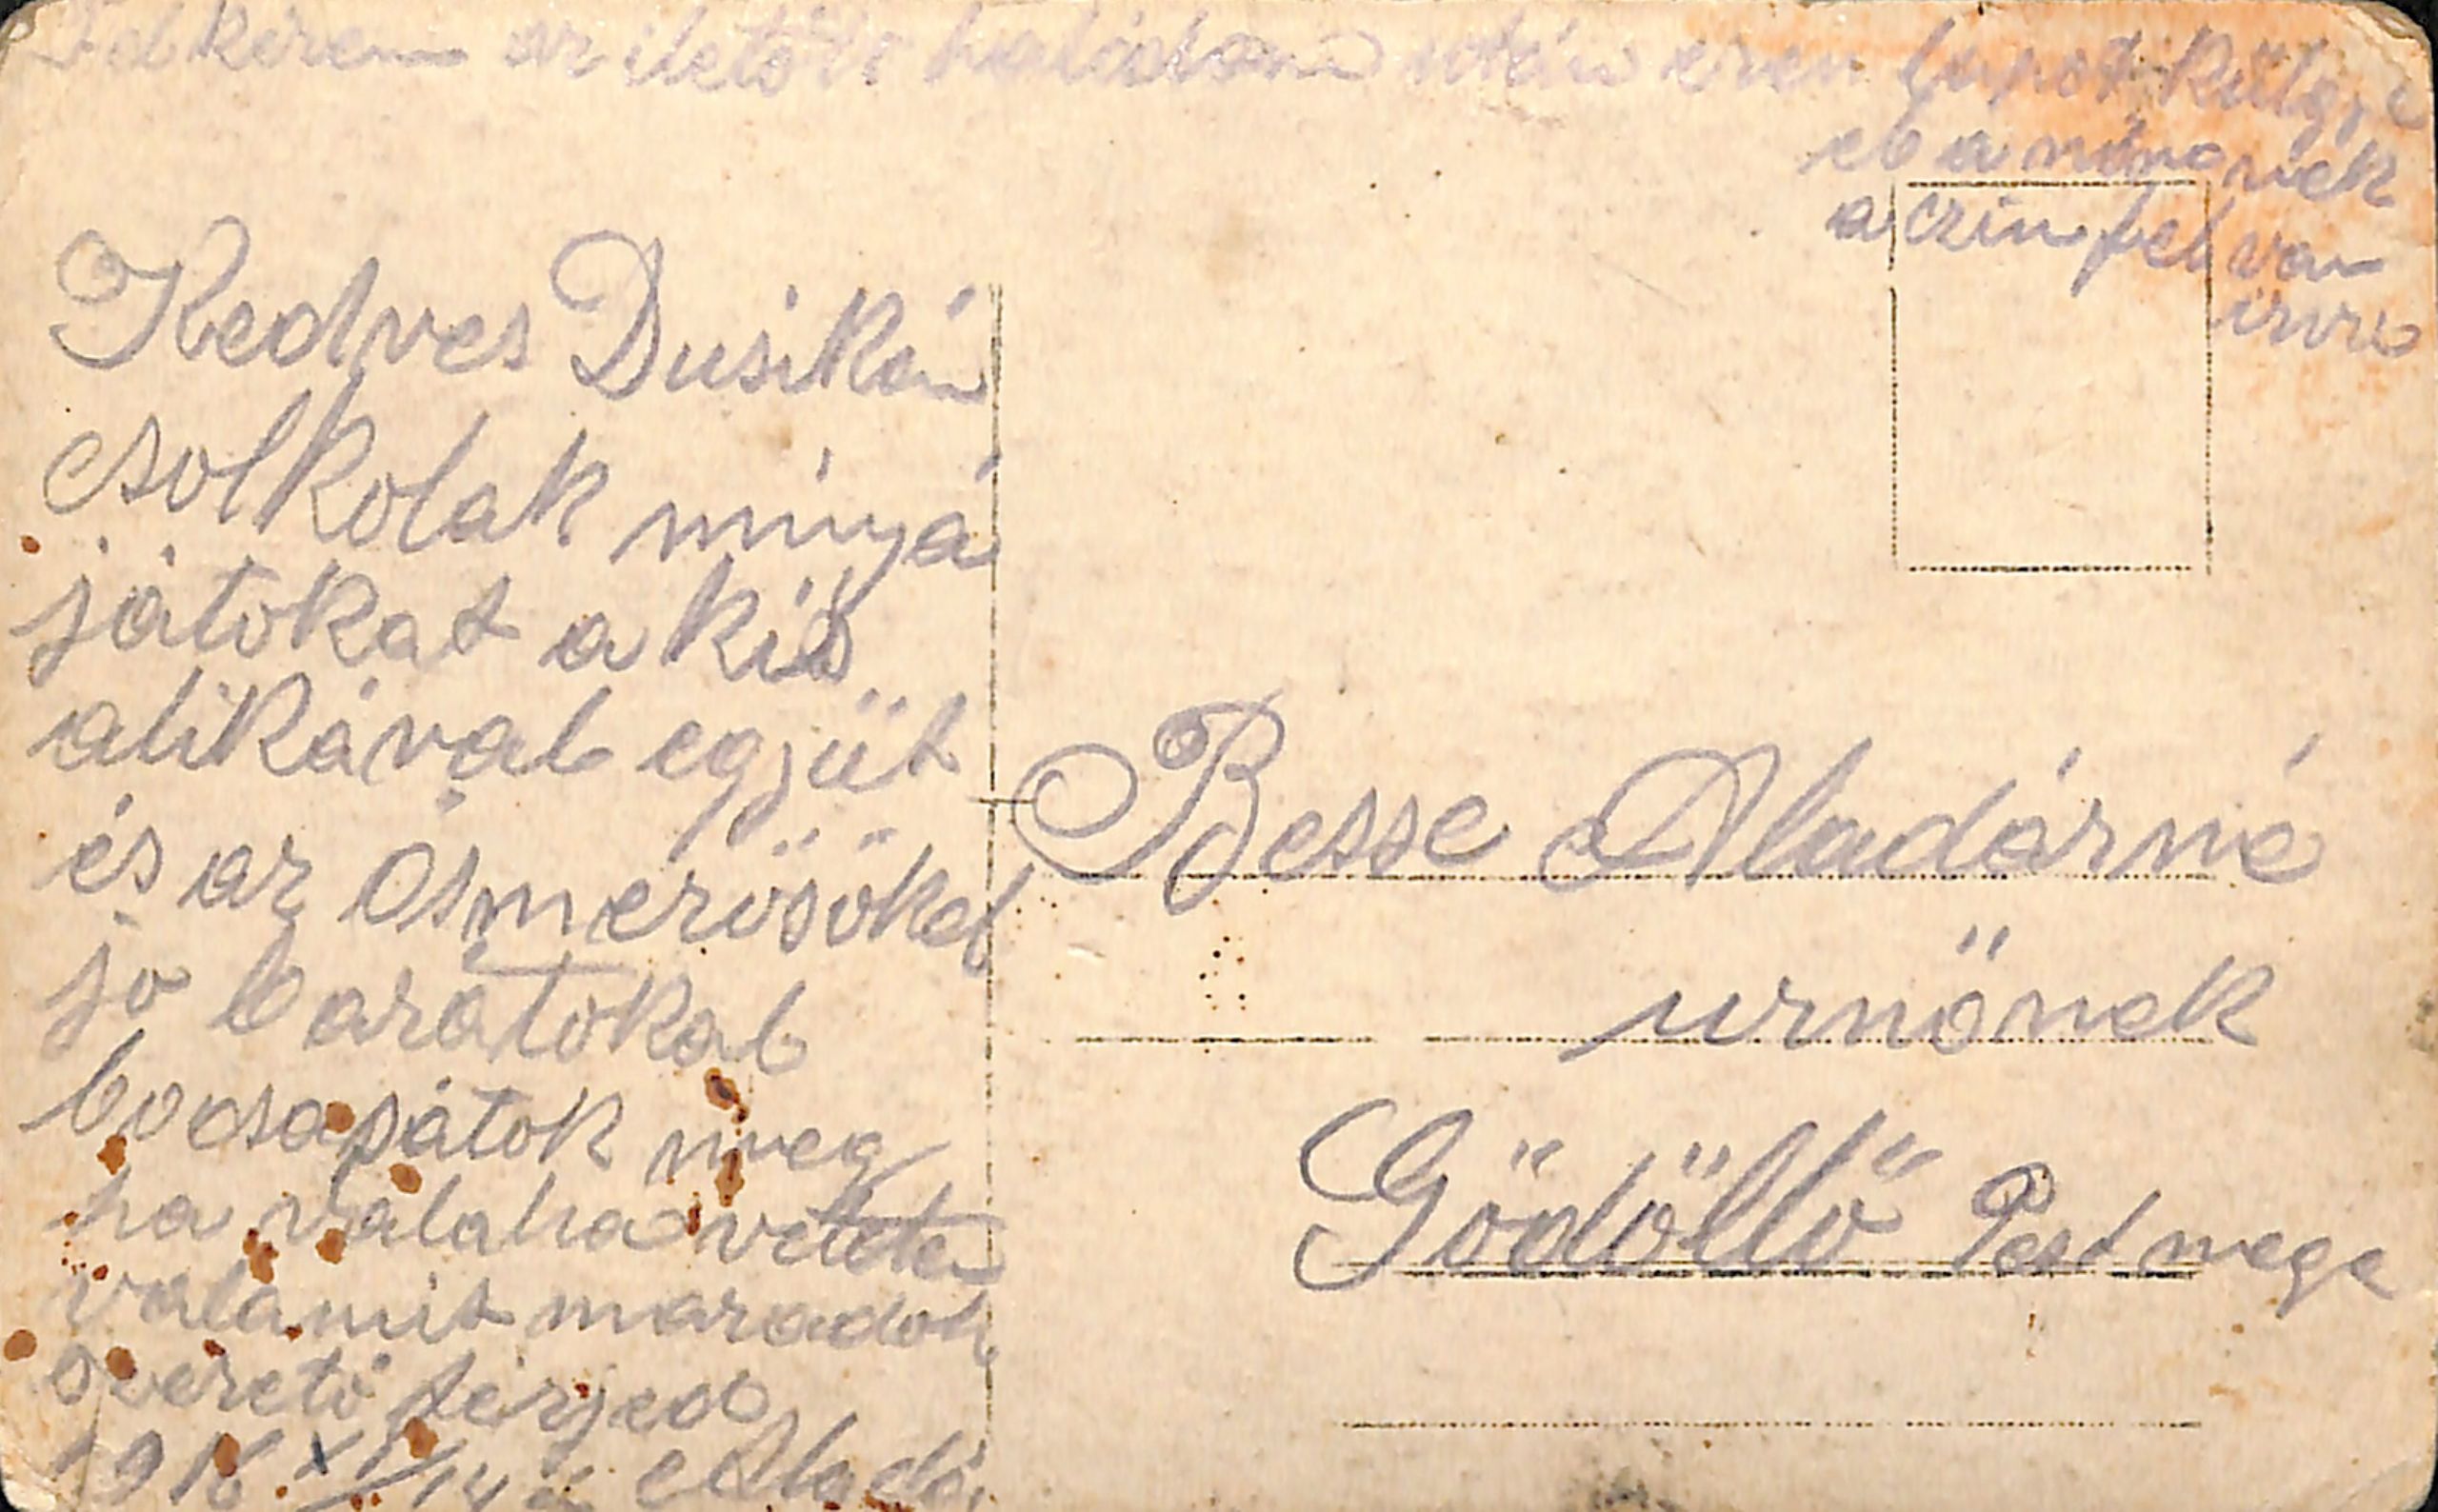 Felkérem az iletőt halálom után ezen lapot küldje
el a nőmnek
a czim fel van
irva
Kedves Dusikám
csolkolak minyá
játokat a kis
alikával együt
és az ösmerösöket
jo barátokal
bocsásátok meg
ha valaha vétetem
valamit maradok
szerető férjed
1916 XI/14 Aladár
Besse Aladárné
urnőnek
Gödöllő Pest mege